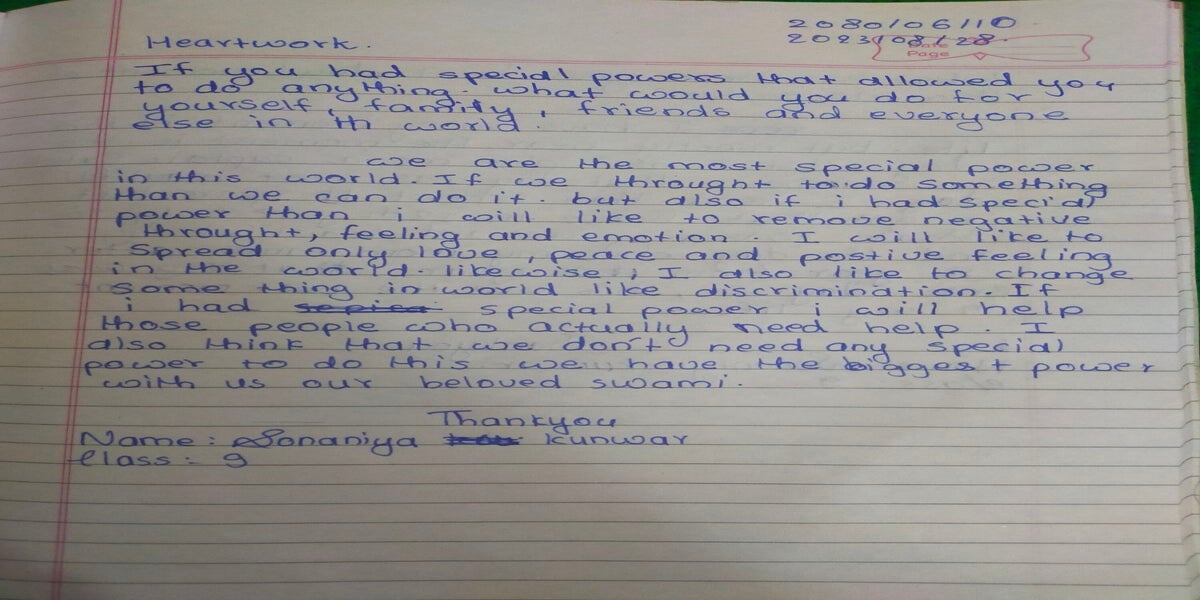 2080/06/10
Heartwork.
2023/08/28
Date
Page
If you had special powers that allowed you
to do anything. what would you do for
yourself, family, friends and everyone
else in th world.
we are the most special power
in this world. If we throught to do something
than we can do it. but also if i had special
power than i will like to remove negative
throught, feeling and emotion. I will like to
spread only love, peace and postive feeling
in the world. likewise, I also like to change
some thing in world like discrimination. If
i had special power i will help
those people who actually need help. I
also think that we don't need any special
power to do this we have the biggest power
with us our beloved swami.
Thankyou
Name: Sonaniya Kunwar
Class: 9